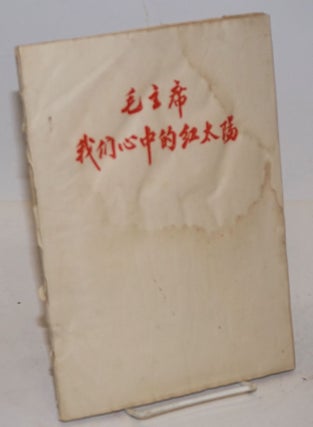 毛主席
我们心中的红太陽